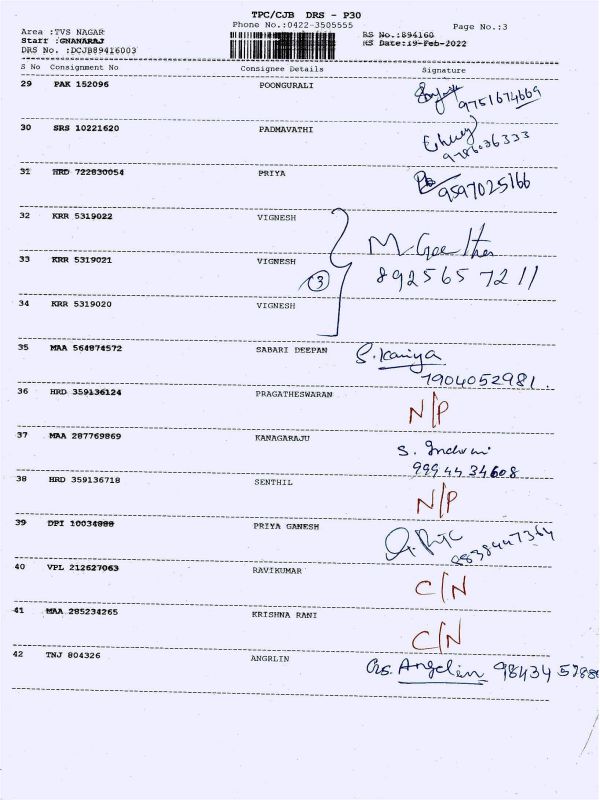 TPC/CJB DRS - P30
Phone No.:0422-3505555
Page No.:3
Area :TVS NAGAR
Staff :GNANARAJ
DRS No. :DCJB89416003
RS No.:894160
RS Date:19-Feb-2022
S No Consignment No Consignee Details Signature
29 PAK 152096 POONGURALI 9751674669
30 SRS 10221620 PADMAVATHI 9786036333
31 HRD 722830054 PRIYA 9597025166
32 KRR 5319022 VIGNESH
33 KRR 5319021 VIGNESH 3 8925657211
34 KRR 5319020 VIGNESH
35 MAA 564874572 SABARI DEEPAN S. Kaniya
7904052981.
36 HRD 359136124 PRAGATHESWARAN N/P
37 MAA 287769869 KANAGARAJU S. Indrani
9994434608
38 HRD 359136718 SENTHIL N/P
39 DPI 10034888 PRIYA GANESH 8838447364
40 VPL 212627063 RAVIKUMAR C/N
41 MAA 285234265 KRISHNA RANI C/N
42 TNJ 804326 ANGRLIN Angelin 98434 57886